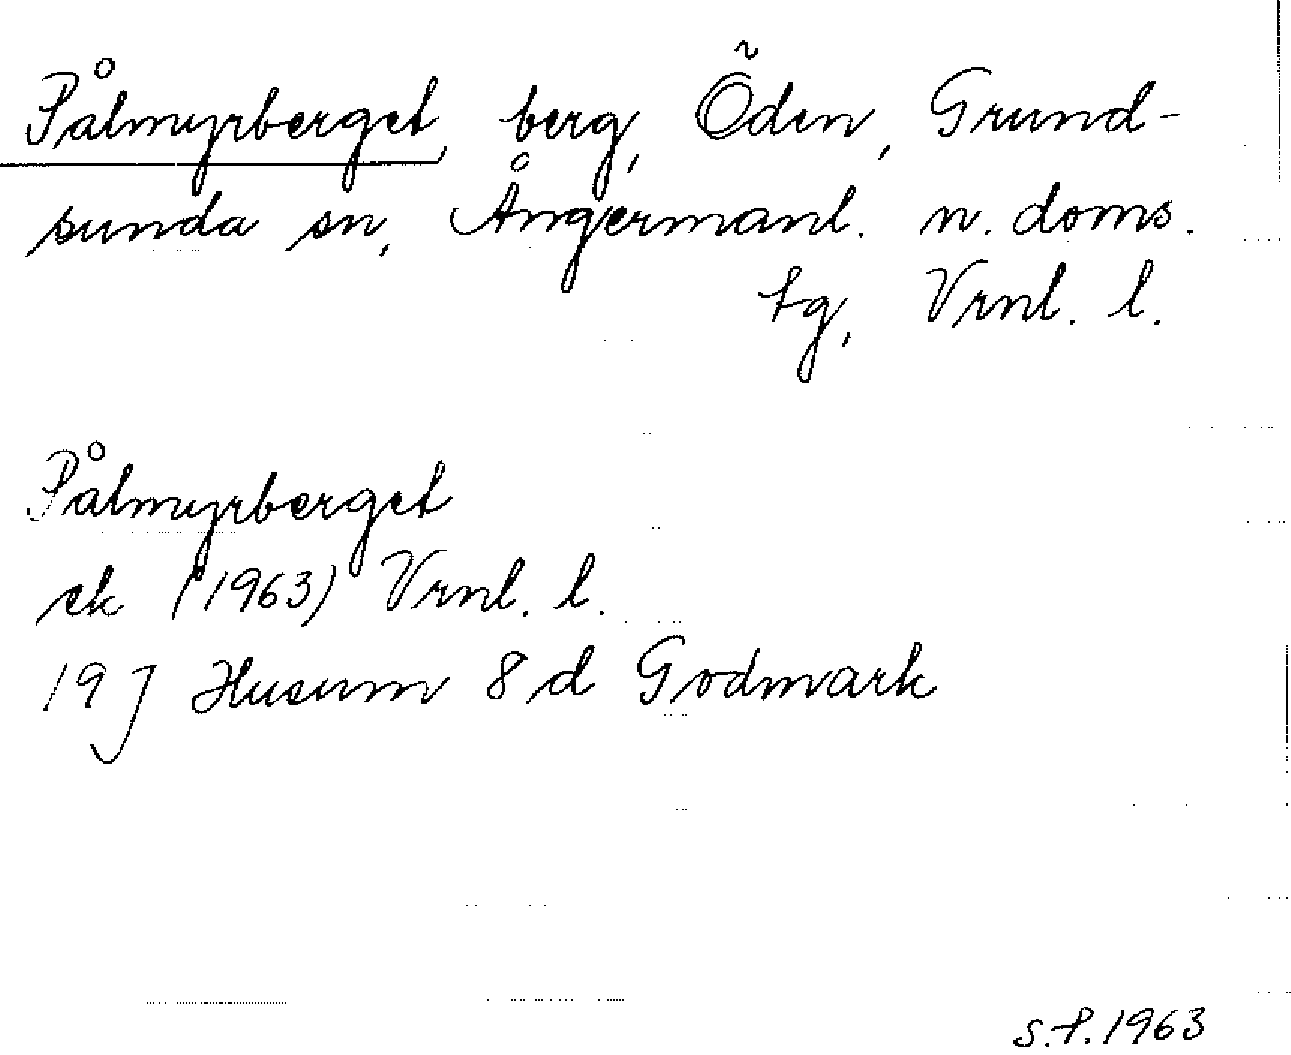 Pålmyrberget, berg, Öden, Grund-
sunda sn, Ångermanl. n. doms.
tg, Vrnl. l.
Pålmyrberget
ek (1963) Vrnl. l.
19 J Husum 8 d Godmark
S.P. 1963